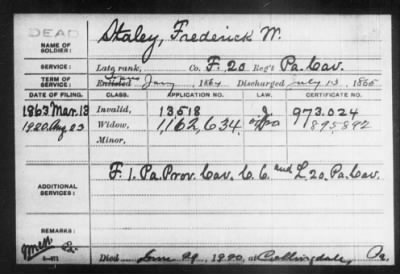 DEAD
NAME OF SOLDIER: Staley, Frederick W.
SERVICE: Late rank, Co. F. 20 Reg't Pa. Cav.
TERM OF SERVICE: Enlisted Jany 1864 Discharged July 13 1865
DATE OF FILING. CLASS. APPLICATION NO. LAW. CERTIFICATE NO.
1863 Mar. 13 Invalid, 13,518 973.024
1920. Aug 23 Widow, 1,162,634 895,892
Minor,
ADDITIONAL SERVICES: F. 1. Pa. Prov. Cav. C. C. and L. 20. Pa. Cav.
REMARKS:
Died June 29, 1920, at Collingdale, Pa.